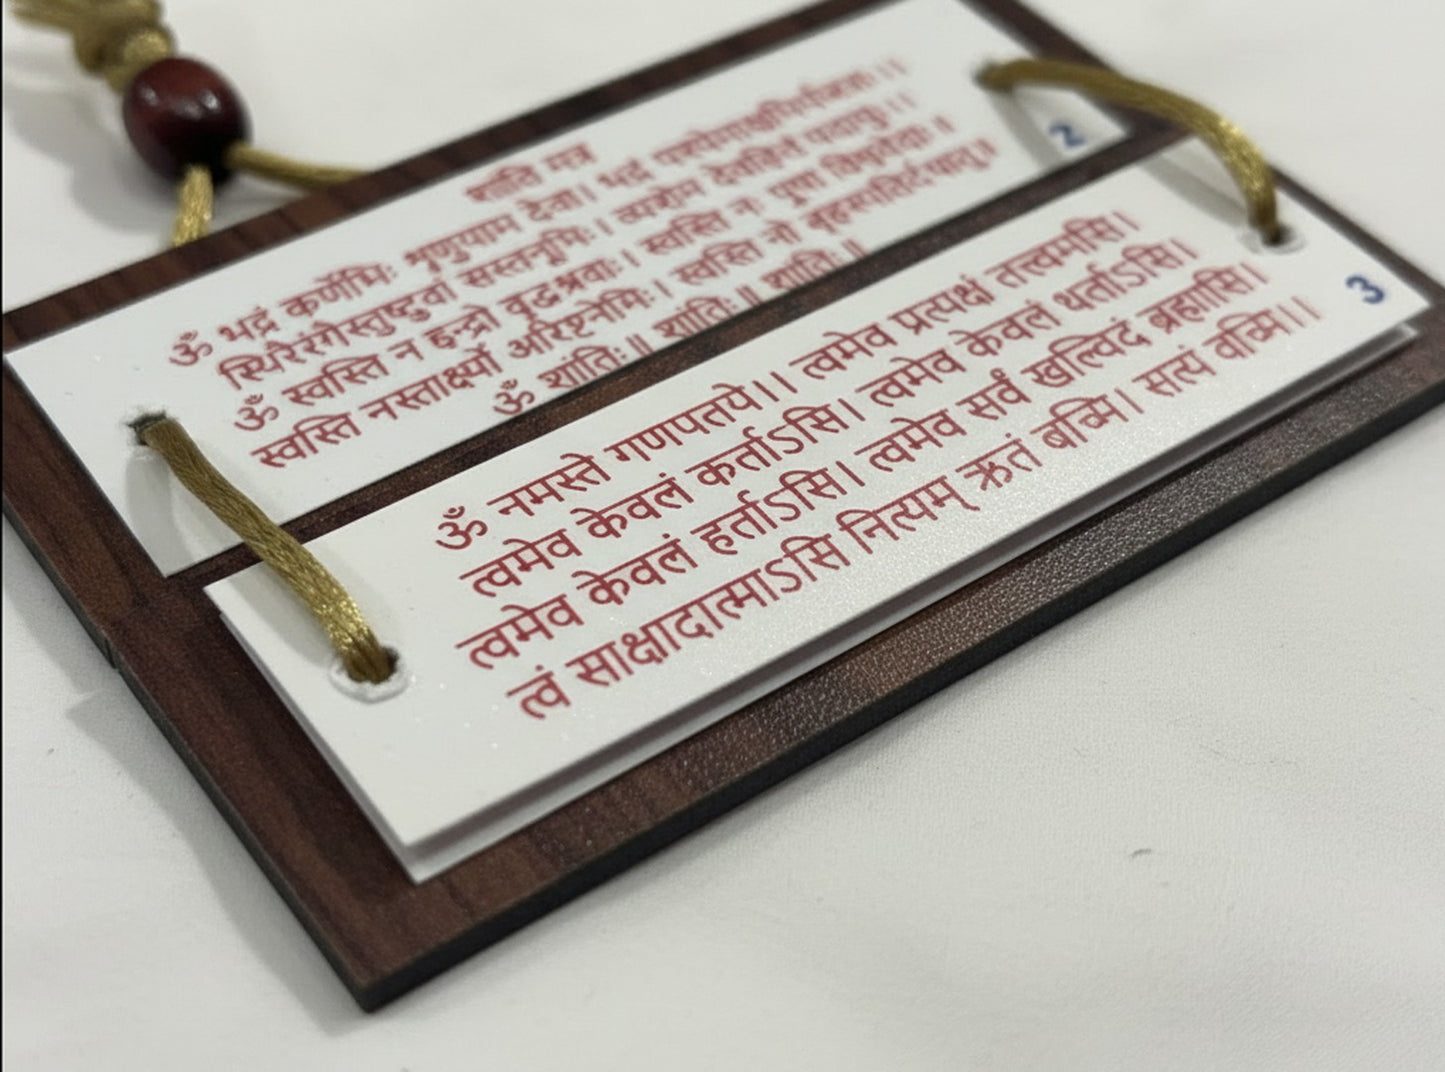 शांति मंत्र
ॐ भद्रं कर्णेभिः श्रृणुयाम देवा। भद्रं
स्थिरैरंगैस्तुष्टुवां सस्तनूभिः। व्यशेम देवहितं यदायुः।।
ॐ स्वस्ति न इन्द्रो वृद्धश्रवाः। स्वस्ति नः पुषा विश्ववेदाः॥
स्वस्ति नस्तार्क्ष्यो अरिष्टनेमिः। स्वस्ति नो बृहस्पतिर्दधातु॥
ॐ शांतिः॥ शांतिः॥ शांतिः॥
2
ॐ नमस्ते गणपतये।। त्वमेव प्रत्यक्षं तत्त्वमसि।
त्वमेव केवलं कर्ताऽसि। त्वमेव केवलं धर्ताऽसि।
त्वमेव केवलं हर्ताऽसि। त्वमेव सर्वं खल्विदं ब्रह्मासि।
त्वं साक्षादात्माऽसि नित्यम् ऋतं बच्मि। सत्यं वच्मि।।
3